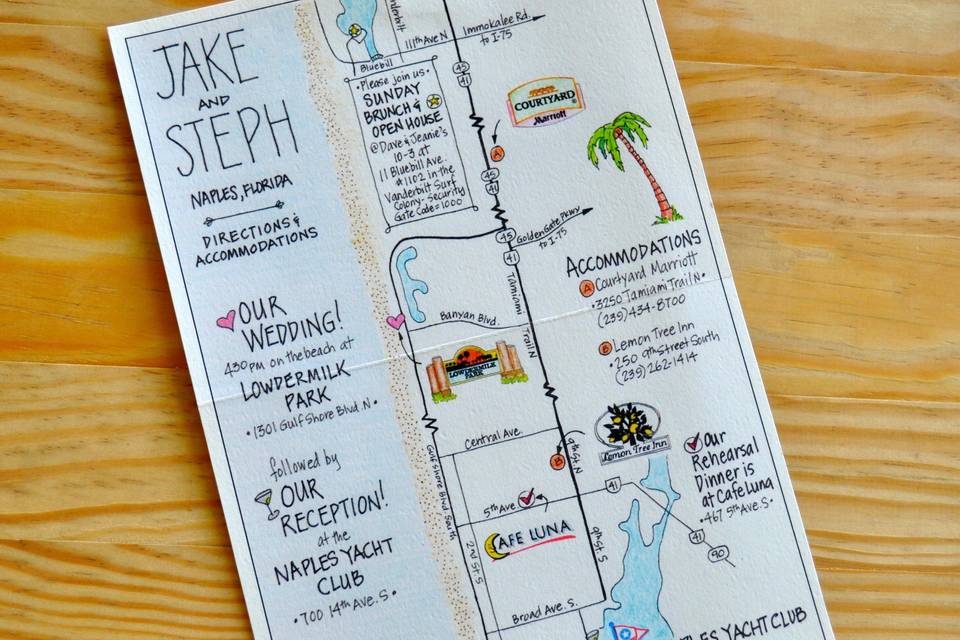 JAKE
AND
STEPH
NAPLES, FLORIDA
DIRECTIONS &
ACCOMMODATIONS
OUR
WEDDING!
4:30 pm on the beach at
LOWDERMILK
PARK
• 1301 Gulf Shore Blvd. N •
followed by
OUR
RECEPTION!
at the
NAPLES YACHT
CLUB
• 700 14th Ave. S •
111th Ave N
Immokalee Rd.
to I-75
Bluebill
• Please join us •
SUNDAY
BRUNCH &
OPEN HOUSE
@ Dave & Jeanie's
10-3 at
11 Bluebill Ave.
#1102 in the
Vanderbilt Surf
Colony - Security
Gate Code = 1000
45
41
COURTYARD
Marriott
A
45
41
45
41
Golden Gate Pkwy
to I-75
Tamiami
Trail N
Banyan Blvd.
LOWDERMILK
PARK
Central Ave.
9th St. N
B
Lemon Tree Inn
Gulf Shore Blvd South
5th Ave
41
CAFE LUNA
2nd St. S
9th St. S
41
90
Broad Ave. S.
ACCOMMODATIONS
A Courtyard Marriott
• 3250 Tamiami Trail N •
(239) 434-8700
B Lemon Tree Inn
• 250 9th Street South
(239) 262-1414
Our
Rehearsal
Dinner is
at Cafe Luna
• 467 5th Ave. S •
YACHT CLUB